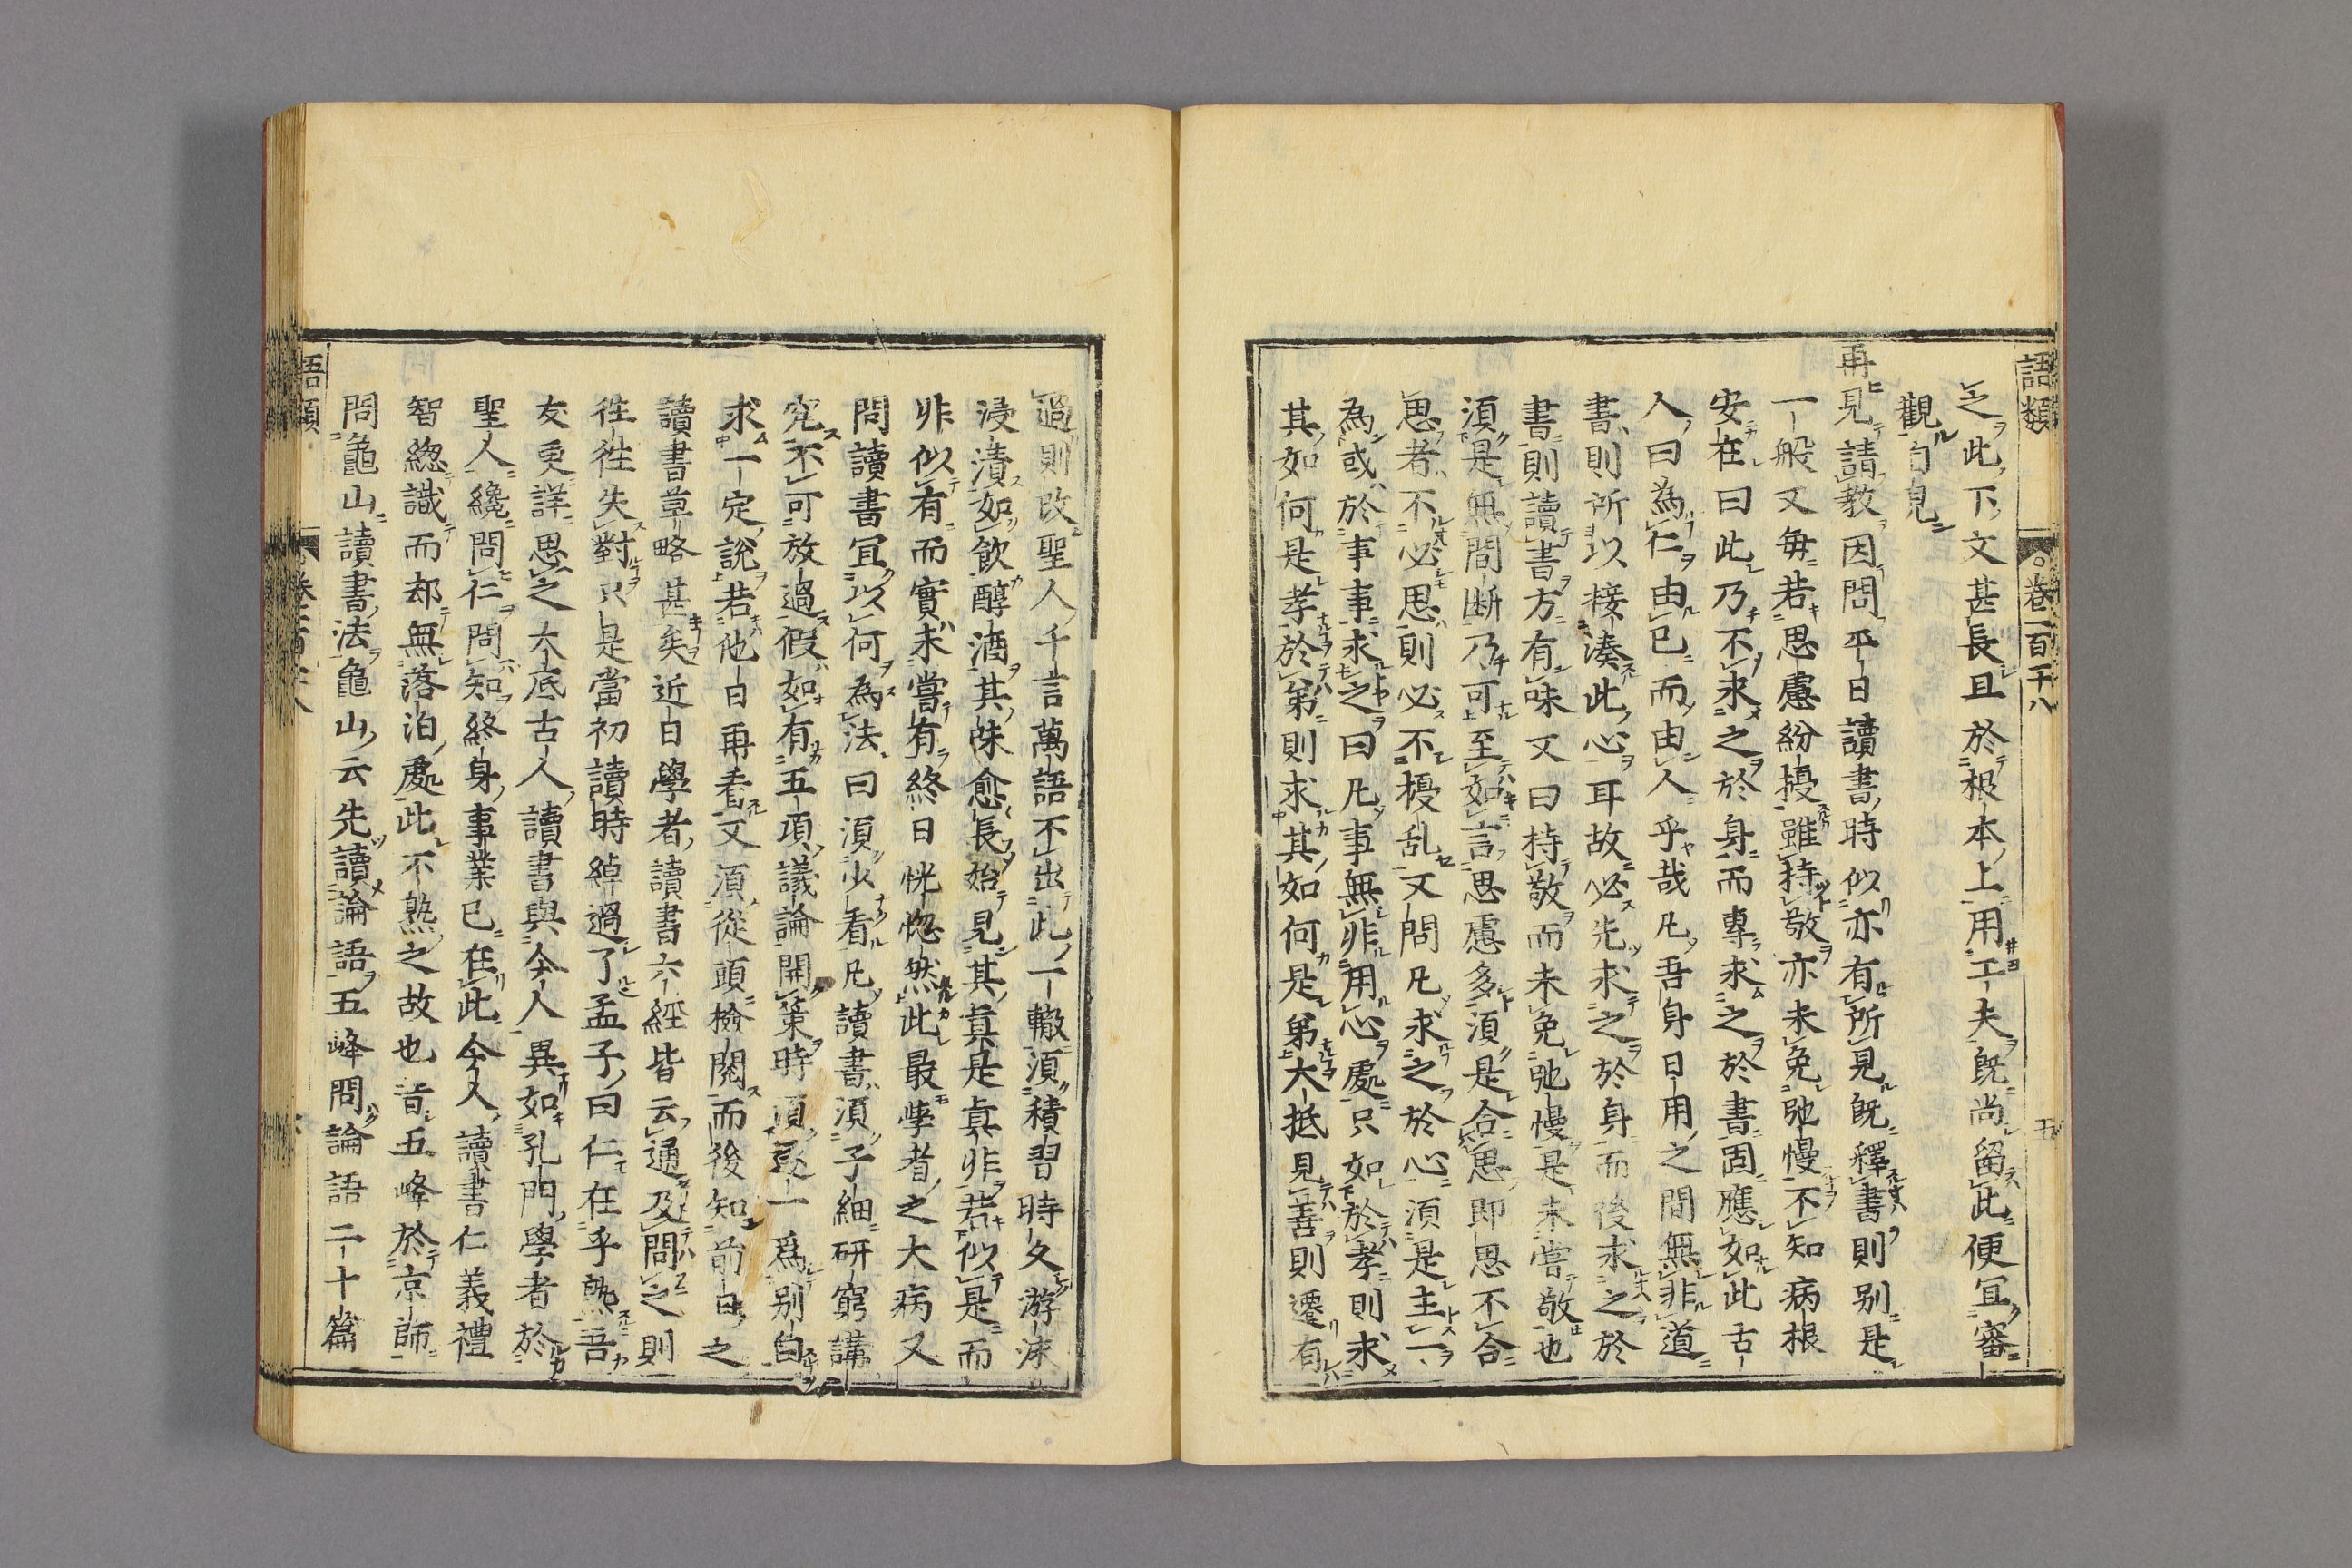 語類　卷一百十八　五
之此下文甚長且於根本上用工夫旣尚留此便宜審
觀自見
再見請教因問平日讀書時似亦有所見旣釋書則别是
一般又每若思慮紛擾雖持敬亦未免弛慢不知病根
安在曰此乃不求之於身而專求之於書固應如此古
人曰為仁由已而由人乎哉凡吾身日用之間無非道
書則所以接湊此心耳故必先求之於身而後求之於
書則讀書方有味又曰持敬而未免弛慢是未嘗敬也
須是無間断乃可至如言思慮多須是合思即思不合
思者不必思則必不擾乱又問凡求之於心須是主一
為或於事事求之曰凡事無非用心處只如於孝則求
其如何是孝於弟則求其如何是弟大抵見善則遷有
過則改聖人千言萬語不出此一轍須積習時久游泳
浸漬如飲醇酒其味愈長始見其真是真非若似是而
非似有而實未嘗有終日恍惚然此最學者之大病又
問讀書宜以何為法曰須少看凡讀書須子細研窮講
究不可放過假如有五項議論開策時須逐一爲别白
求一定說若他日再看又須從頭檢閲而後知前日之
讀書草略甚矣近日學者讀書六經皆云通及問之則
徃徃失對只是當初讀時綽過了孟子曰仁在乎熟吾
友更詳思之大底古人讀書與今人異如孔門學者於
聖人纔問仁問知終身事業已在此今人讀書仁義禮
智緫識而却無落泊處此不熟之故也昔五峰於京師
問龜山讀書法龜山云先讀論語五峰問論語二十篇
語類